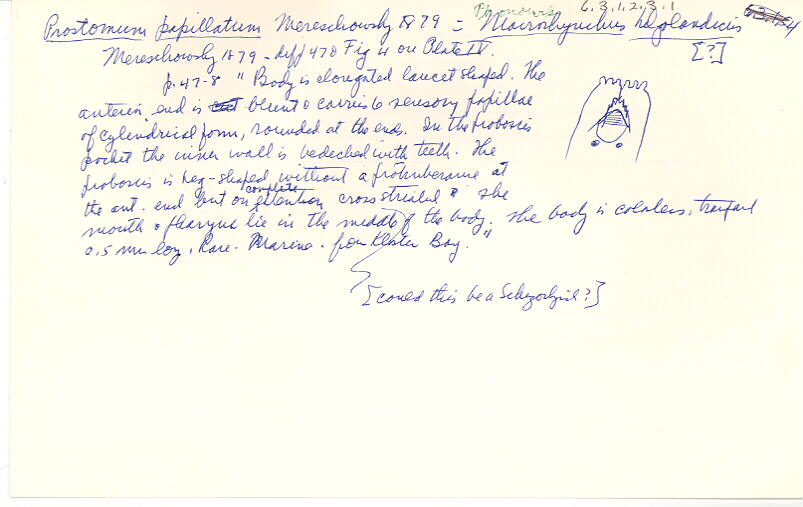 6.3.1.2.3.1
Prostomum papillatum Mereschowsky 1879 = Macrorhynchus helgolandicus
Mereschowsky 1879 - diff 470 Fig 4 on Plate IV. [?]
p. 47-8 " Body is elongated lancet shaped. The
anterior end is blunt & carries 6 sensory papillae
of cylindrical form, rounded at the ends. In the proboscis
pocket the inner wall is bedecked with teeth. The
proboscis is peg-shaped without a protuberance at
the ant. end but on complete cross striated " The
mouth & pharynx lie in the middle of the body. The body is colorless,
0.5 mm long. Rare. Marine. from Kloster Bay. "
[could this be a Schizorhynch?]